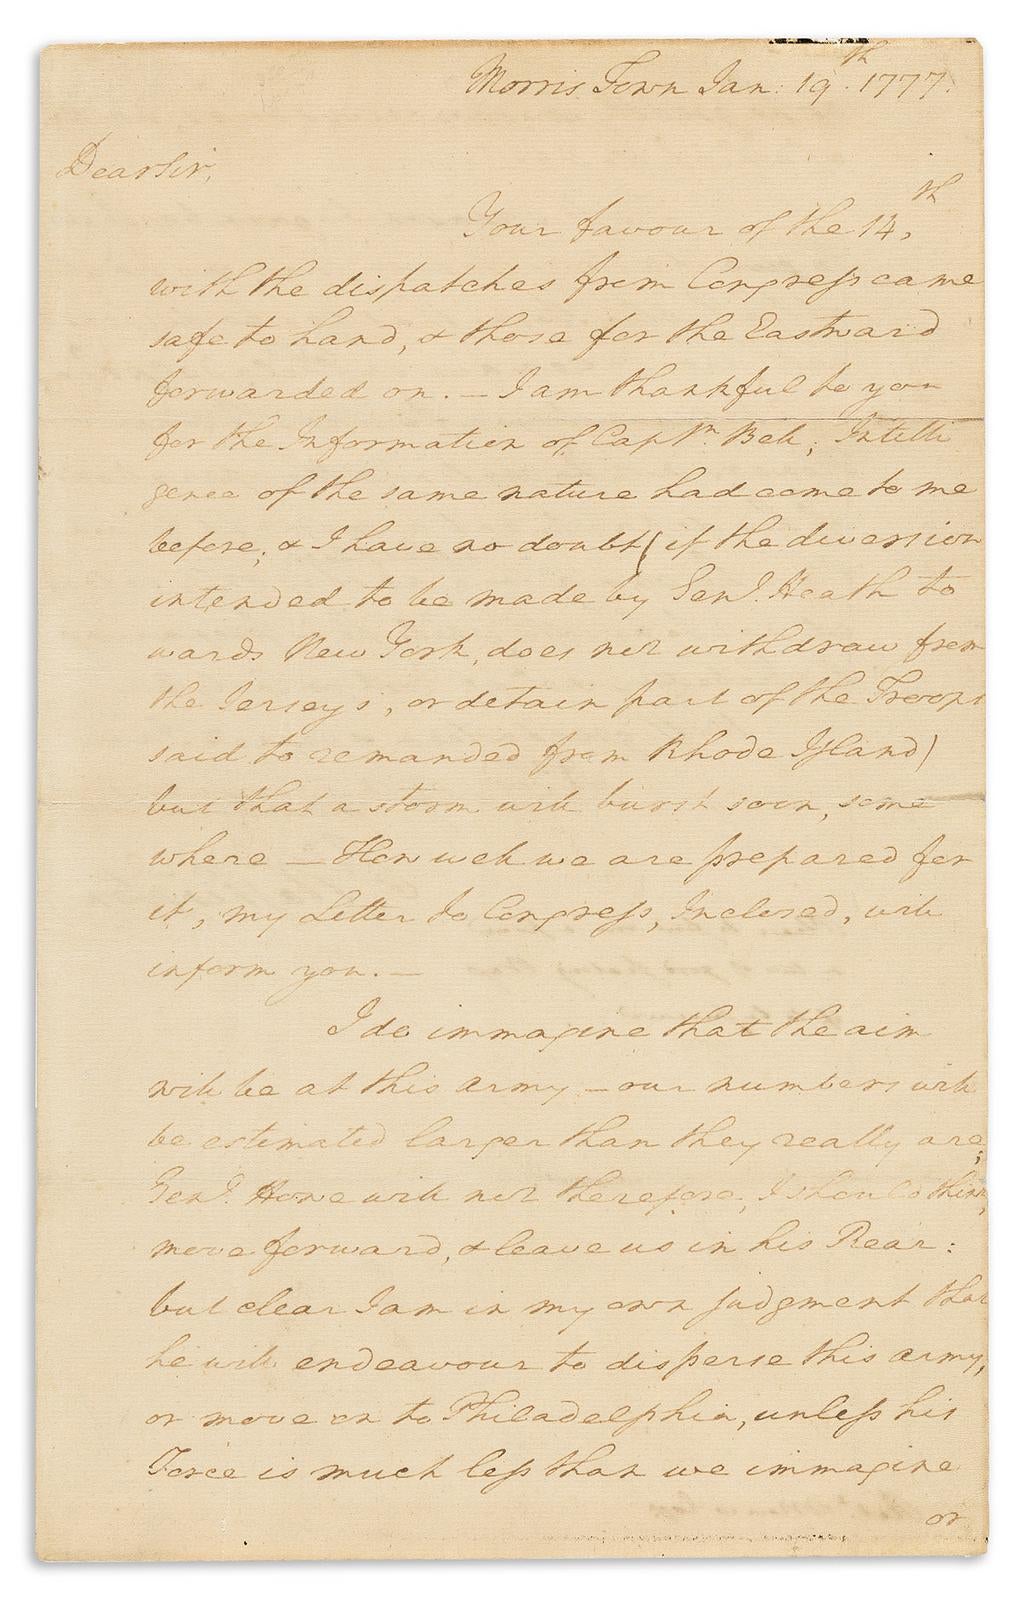 Morris Town Jan: 19th. 1777.
Dear Sir,
Your favour of the 14th,
with the dispatches from Congress came
safe to hand, & those for the Eastward
forwarded on. — I am thankful to you
for the Information of Captn. Bell; Intelli
gence of the same nature had come to me
before; & I have no doubt (if the diversion
intended to be made by Genl. Heath to
wards New York, does not withdraw from
the Jerseys, or detain part of the Troops
said to remanded from Rhode Island)
but that a storm will burst soon, some
where — How well we are prepared for
it, my Letter to Congress, Inclosed, will
inform you. —
I do immagine that the aim
will be at this army — our numbers will
be estimated larger than they really are;
Genl. Howe will not therefore, I should think,
move forward, & leave us in his Rear:
but clear I am in my own judgment that
he will endeavour to disperse this army,
or move on to Philadelphia, unless his
Force is much less than we immagine
or